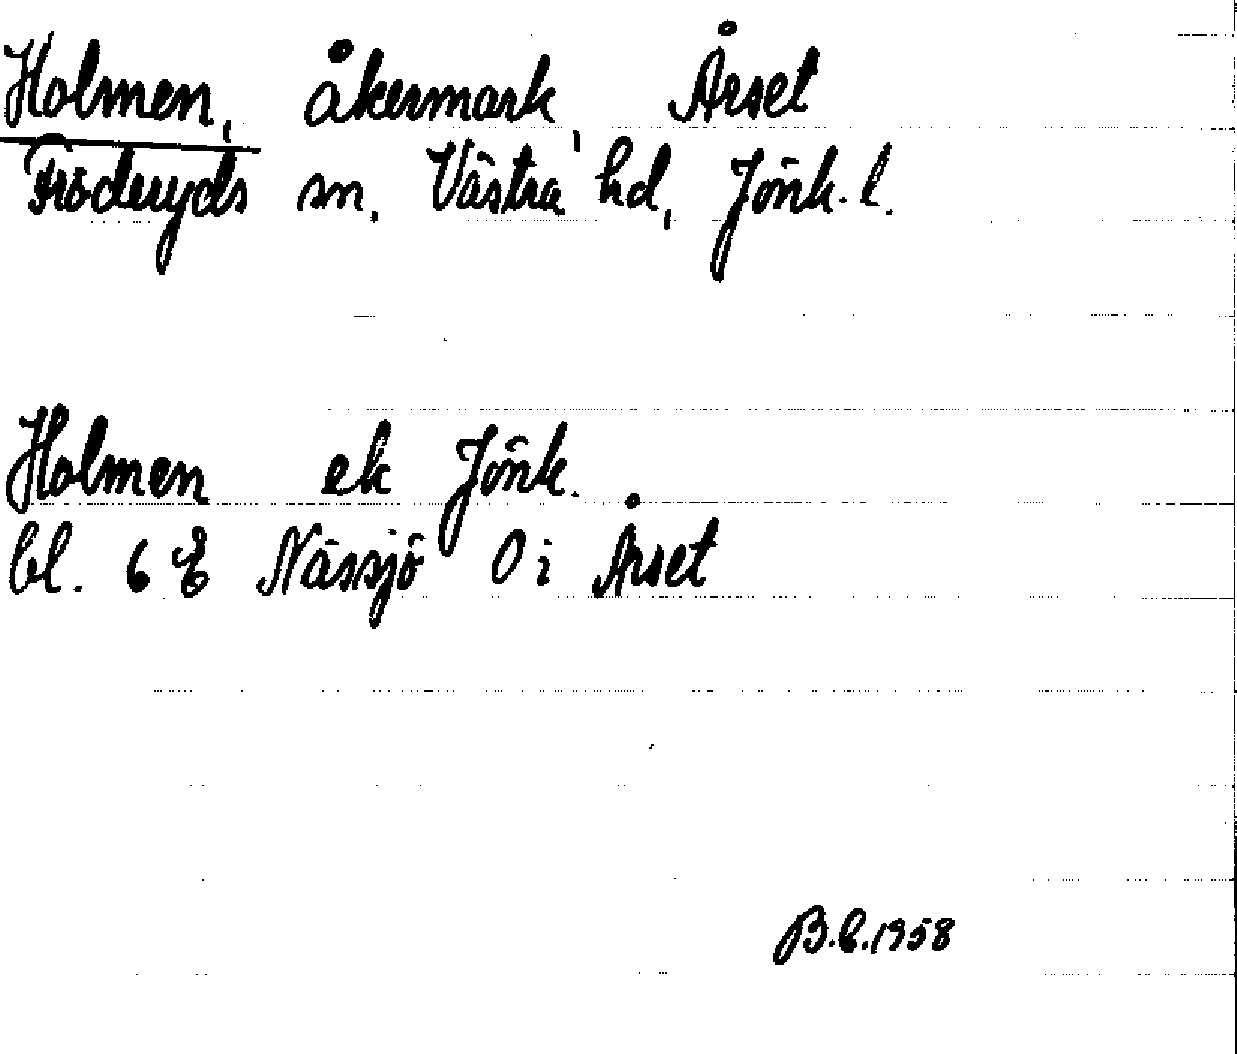 Holmen, åkermark, Årset
Fröderyds sn, Västra hd, Jönk. l.
Holmen ek Jönk.
bl. 6 E Nässjö O i Årset
B.E. 1958